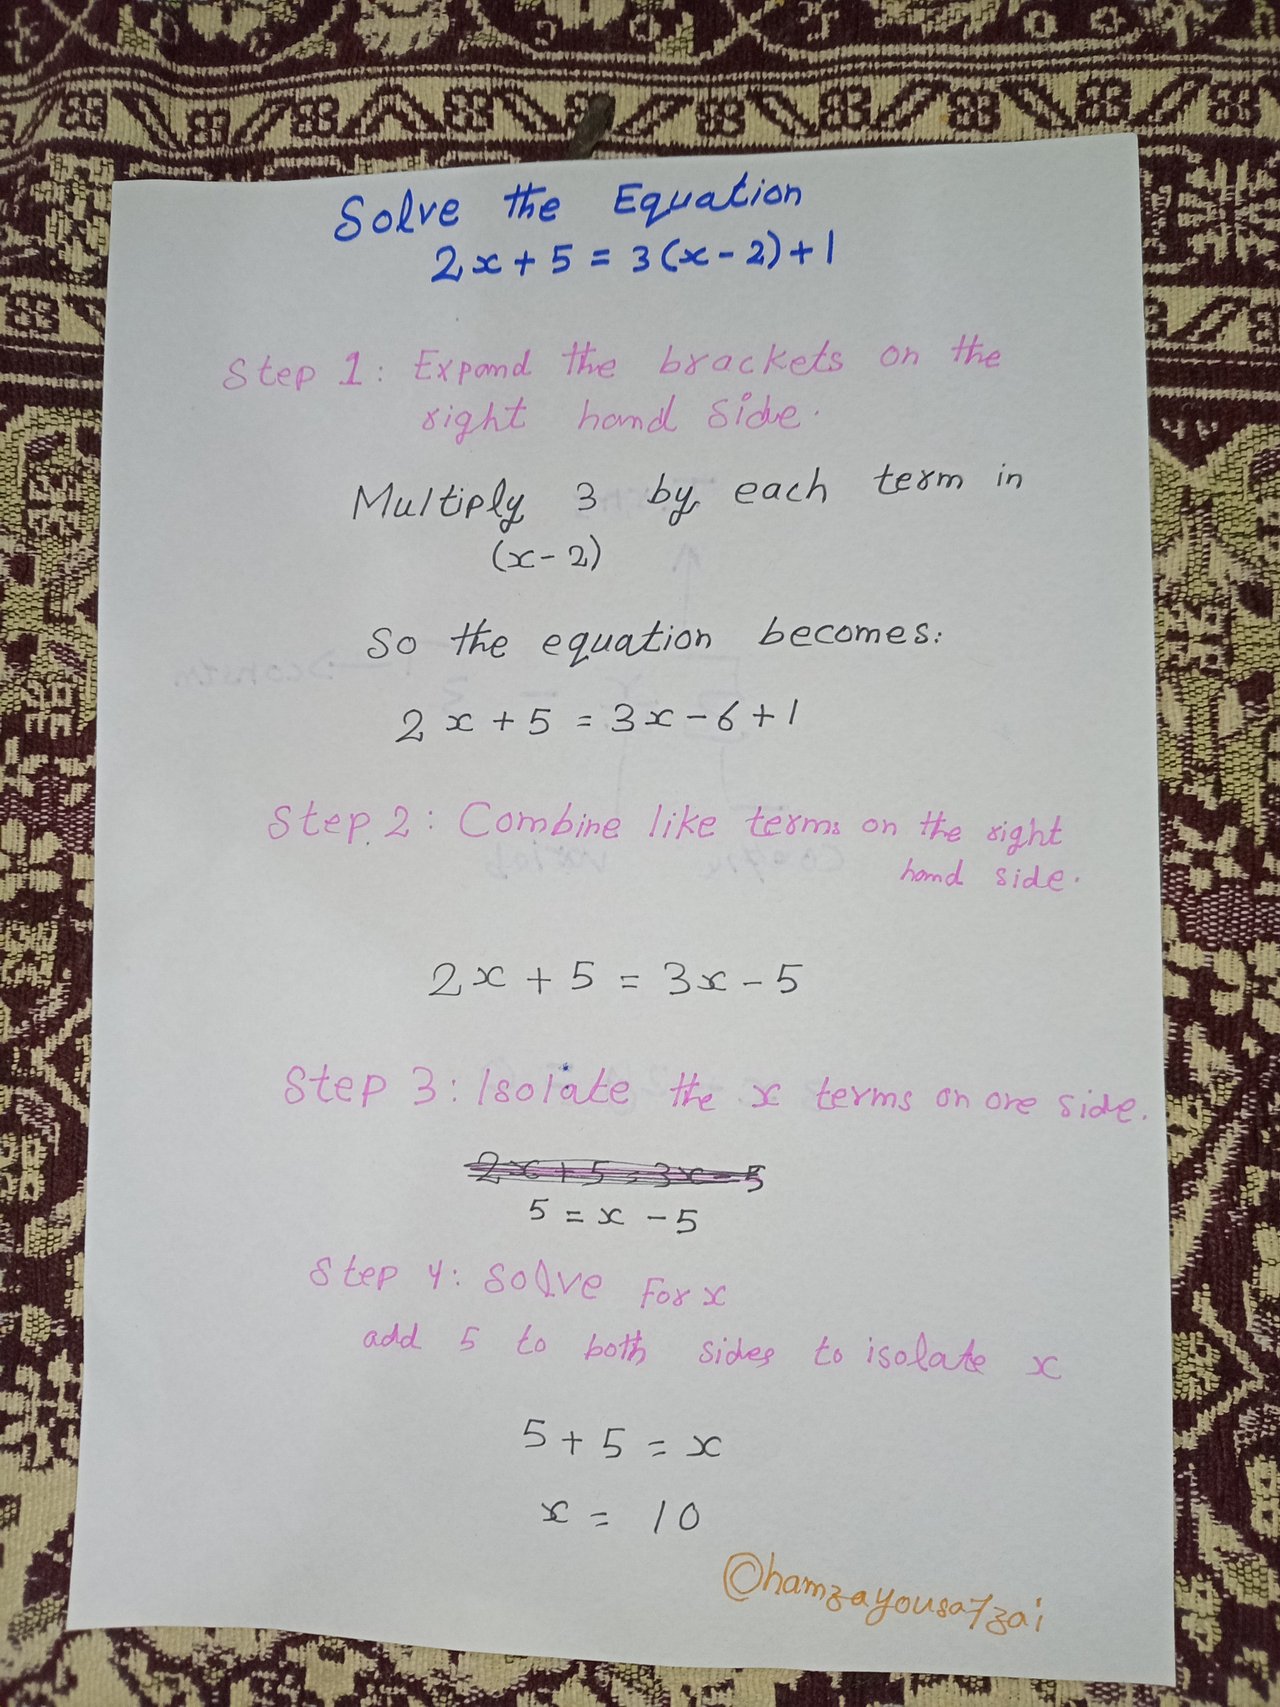 Solve the Equation
2x + 5 = 3(x - 2) + 1
Step 1: Expand the brackets on the
right hand side.
Multiply 3 by each term in
(x - 2)
So the equation becomes:
2x + 5 = 3x - 6 + 1
Step 2: Combine like terms on the right
hand side.
2x + 5 = 3x - 5
Step 3: Isolate the x terms on one side.
2x + 5 = 3x - 5
5 = x - 5
Step 4: Solve For x
add 5 to both sides to isolate x
5 + 5 = x
x = 10
©hamzayousafzai